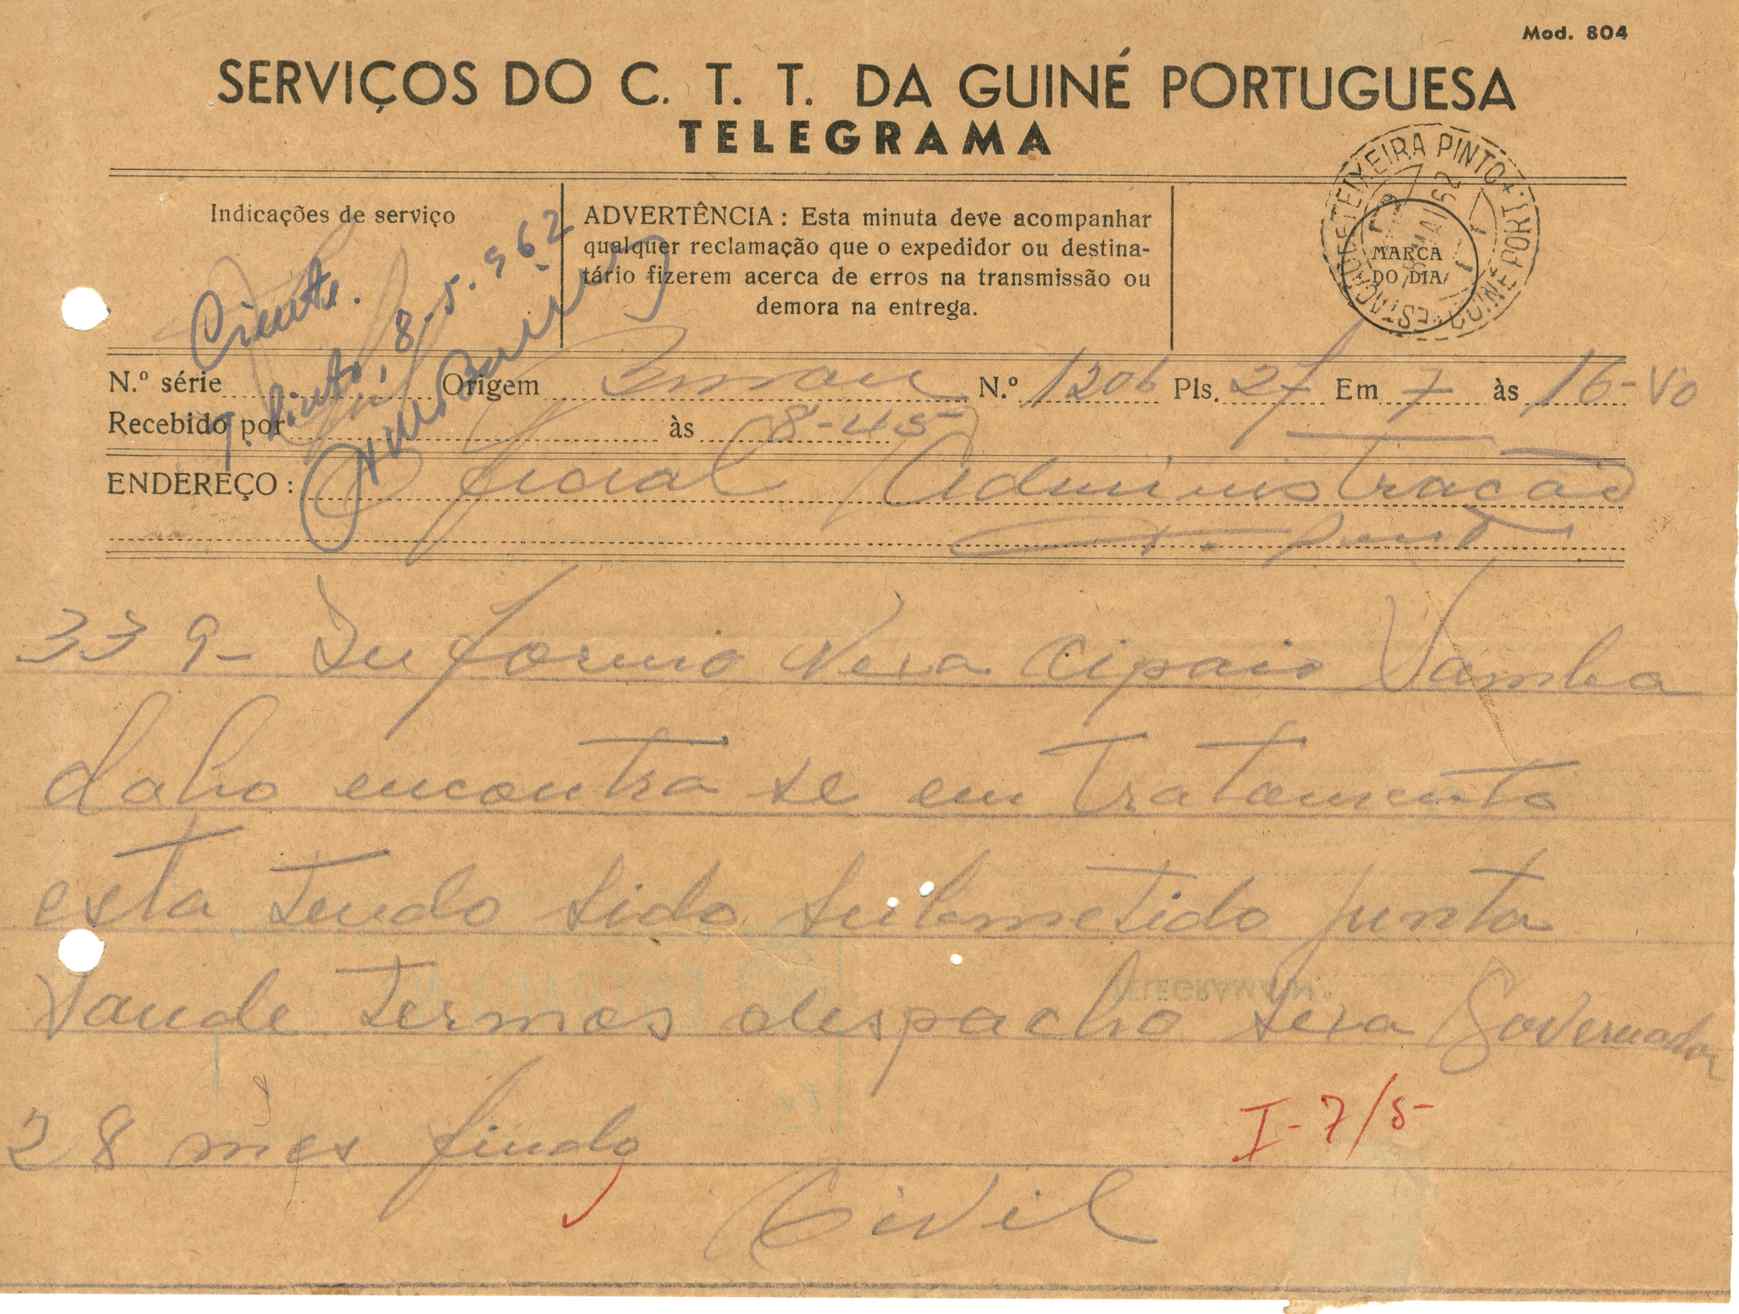 Mod. 804
SERVIÇOS DO C. T. T. DA GUINÉ PORTUGUESA
TELEGRAMA
Indicações de serviço
Ciente.
8-5.962
ADVERTÊNCIA : Esta minuta deve acompanhar
qualquer reclamação que o expedidor ou destina-
tário fizerem acerca de erros na transmissão ou
demora na entrega.
TEIXEIRA PINTO
MARCA
DO DIA
N.º série Origem N.º 1206 Pls. 27 Em 7 às 16-
Recebido por às 8-45
ENDEREÇO : Oficial Administração
T. Pinto
339- Informo Nexa cipaio Samba
daho encontra se em tratamento
esta tendo sido submetido junta
Saude termos despacho sexa Governador
28 mes findo
I-7/5
Civil